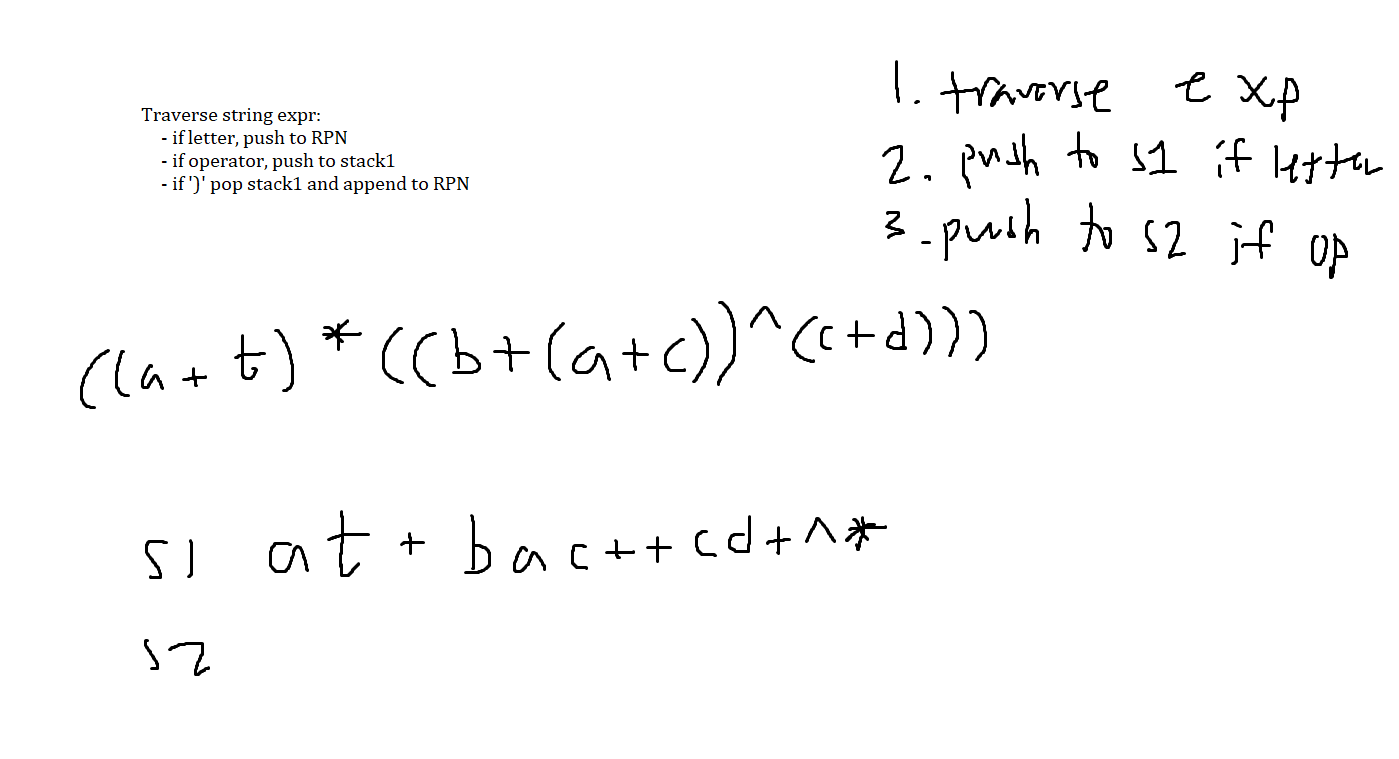 Traverse string expr:
- if letter, push to RPN
- if operator, push to stack1
- if ')' pop stack1 and append to RPN
1. traverse exp
2. push to s1 if letter
3. push to s2 if op
((a+t)*((b+(a+c))^(c+d)))
s1 at+bac++cd+^*
s2